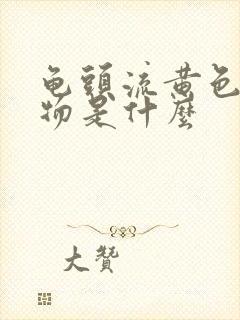 龟頭流黄色
物是什麼
大贊